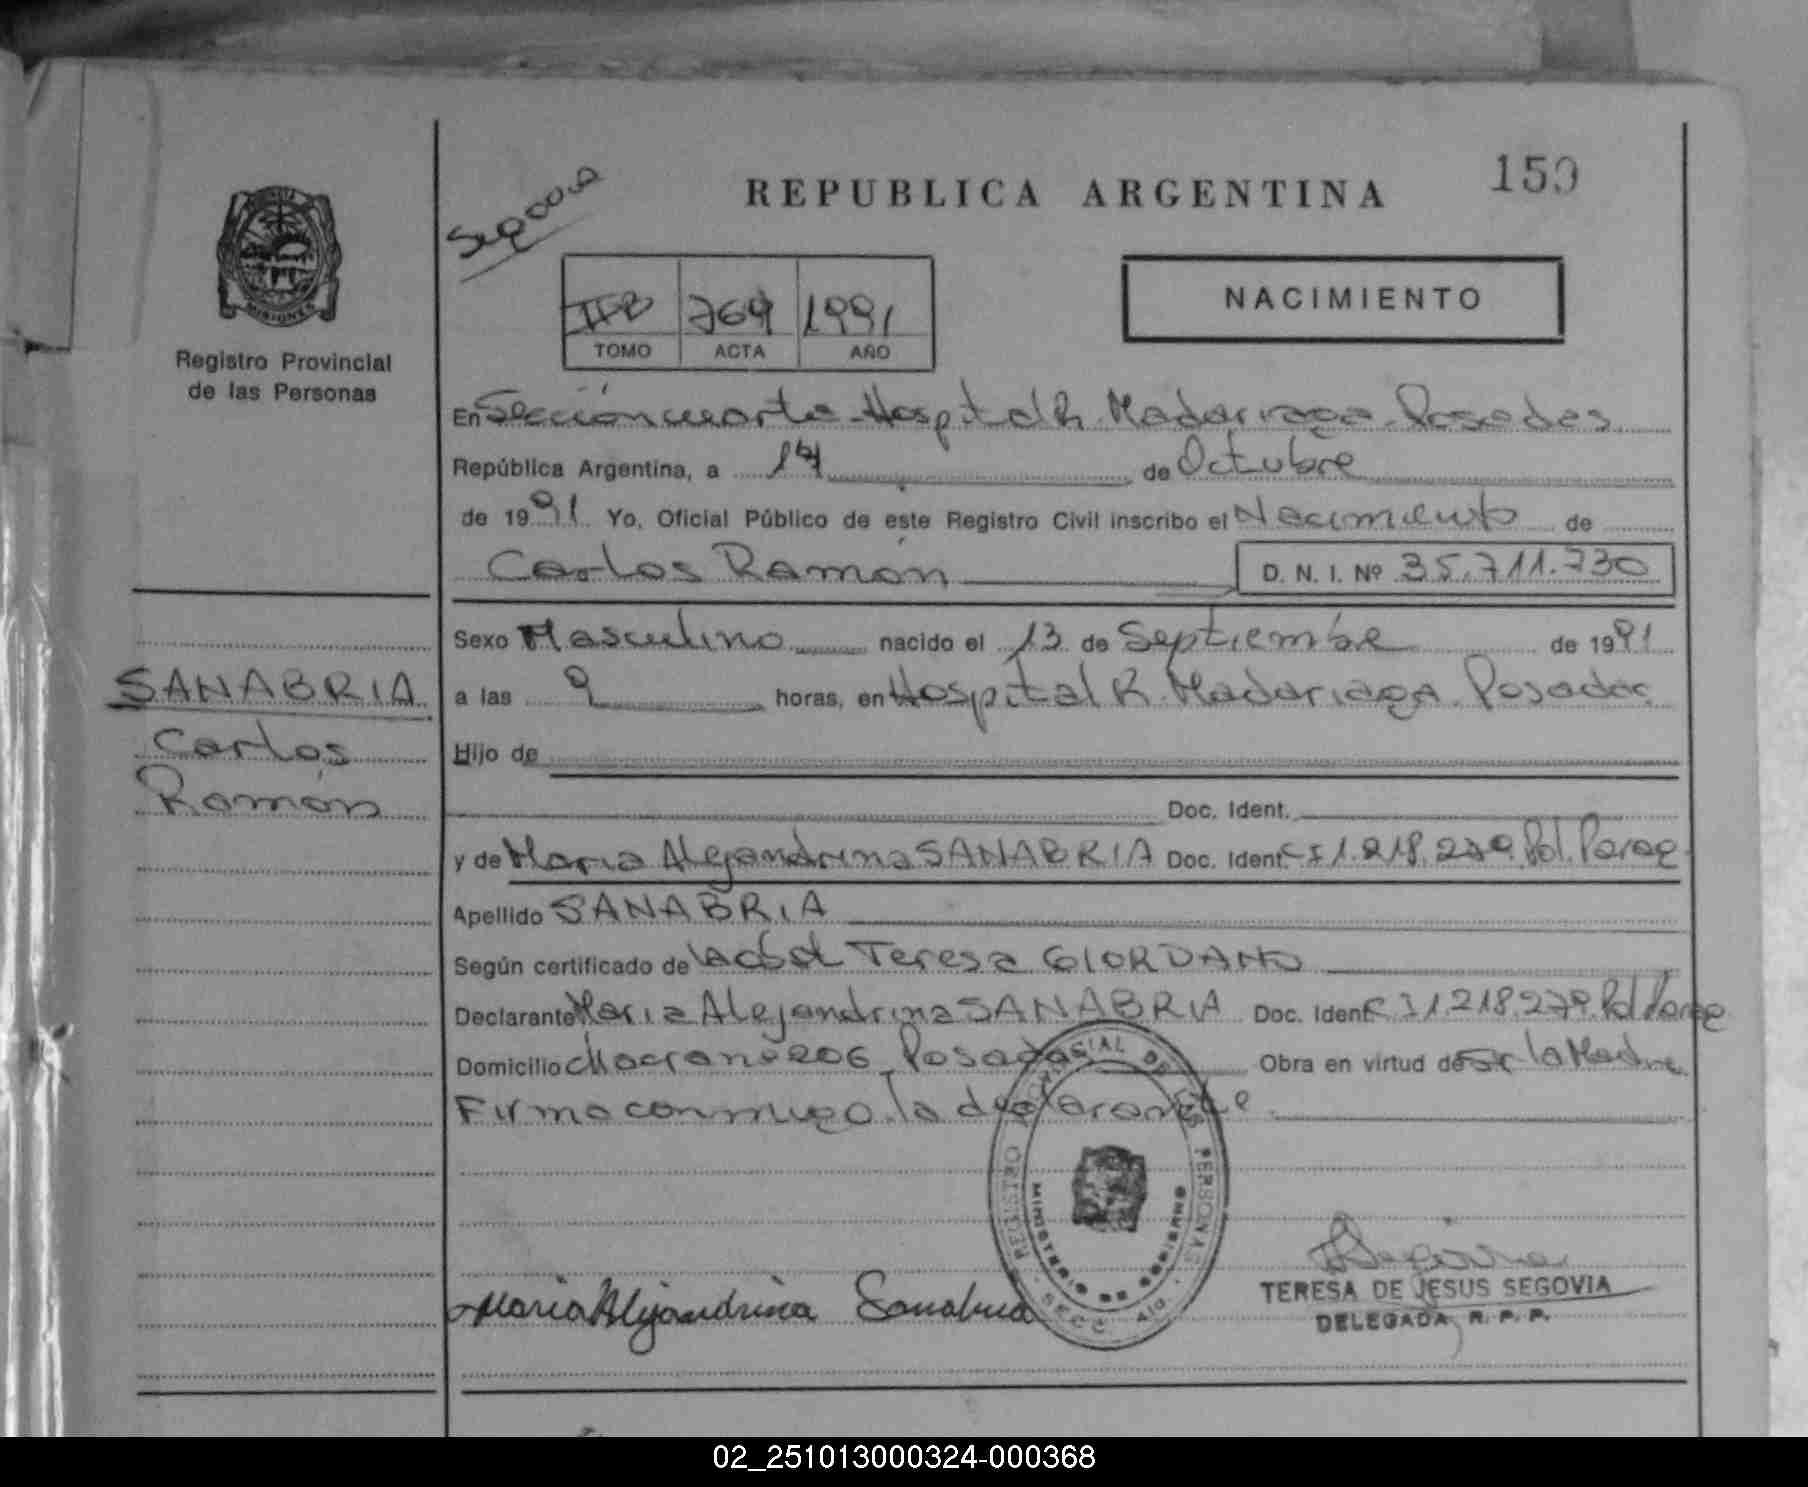 REPUBLICA ARGENTINA
159
MISIONES
Registro Provincial
de las Personas
IIB 769 1991
TOMO ACTA AÑO
NACIMIENTO
En Sección cuarta - Hospital R. Madariaga - Posadas
República Argentina, a 14 de Octubre
de 1991 Yo, Oficial Público de este Registro Civil inscribo el Nacimiento de
Carlos Ramón D. N. I. Nº 35.711.730
Sexo Masculino nacido el 13 de Septiembre de 1991
a las 9 horas, en Hospital R. Madariaga. Posadas
Hijo de
Doc. Ident.
y de Maria Alejandrina SANABRIA Doc. Ident. CI 1.218.279. Pol. Parag
Apellido SANABRIA
Según certificado de la obst Teresa GIORDANO
Declarante Maria Alejandrina SANABRIA Doc. Ident. CI 1.218.279. Pol Parag
Domicilio 206 Posadas Obra en virtud de ser la Madre
Firma conmigo la declarante.
SANABRIA
Carlos
Ramón
REGISTRO PROVINCIAL DE LAS PERSONAS
MINISTERIO DE GOBIERNO
SECC. 4ta.
Maria Alejandrina Sanabria
TERESA DE JESUS SEGOVIA
DELEGADA R. P. P.
02_251013000324-000368